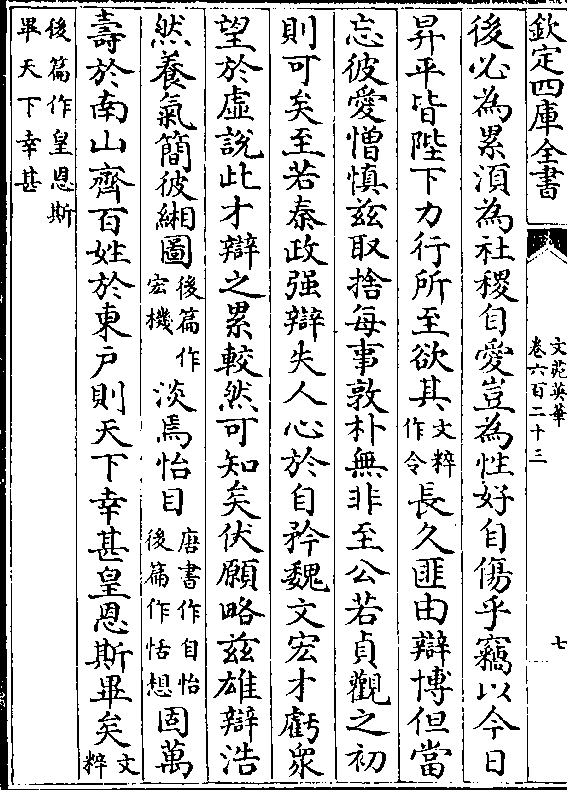 欽定四庫全書
文苑英華
卷六百二十三
七
後必為累湏為社稷自愛豈為性好自傷乎竊以今日
昇平皆陛下力行所至欲其文粹作令長久匪由辯博但當
忘彼愛憎慎兹取捨每事敦朴無非至公若貞觀之初
則可矣至若秦政强辯失人心於自矜魏文宏才虧衆
望於虛說此才辯之累較然可知矣伏願略兹雄辯浩
然養氣簡彼緗圖後篇作宏機淡焉怡目唐書作自怡後篇作恬想固萬
壽於南山齊百姓於東戶則天下幸甚皇恩斯畢矣文粹
後篇作皇恩斯
畢天下幸甚